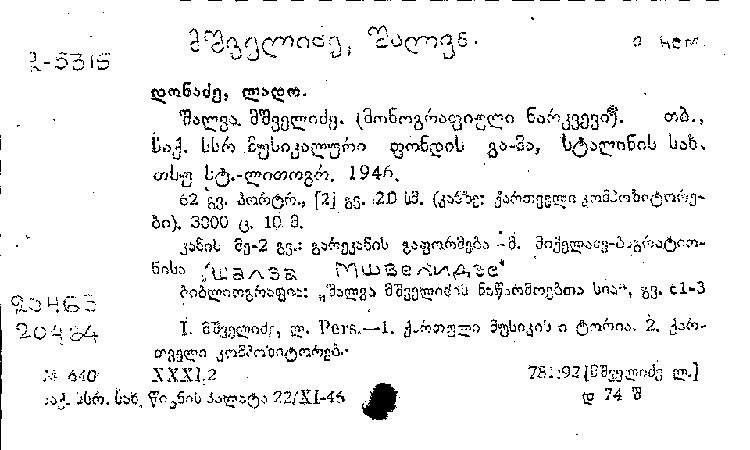 მშველიძე, შალვა.
2-5315
დონაძე, ლადო.
შალვა მშველიძე. (მონოგრაფიული ნარკვევი). თბ.,
საქ. სსრ მუსიკალური ფონდის გა-მა, სტალინის სახ.
თსუ სტ.-ლითოგრ. 1946.
62 გვ. პორტრ., [2] გვ. 20 სმ. (კანზე: ქართველი კომპოზიტორე-
ბი). 3000 ც. 10 მ.
კანის მე-2 გვ.: გარეკანის გაფორმება მ. მიქელაძე-ბაგრატიო-
ნისა „Шалва Мшвелидзе"
ბიბლიოგრაფია: „შალვა მშველიძის ნაწარმოებთა სია", გვ. 61-3
20463
20464
1. მშველიძე, ლ. Pers.—1. ქართული მუსიკის ისტორია. 2. ქარ-
თველი კომპოზიტორები.
№ 640 XXXI.2 781.92 [მშველიძე ლ.]
საქ. სსრ. სახ. წიგნის პალატა 22/XI-46 დ 74 შ